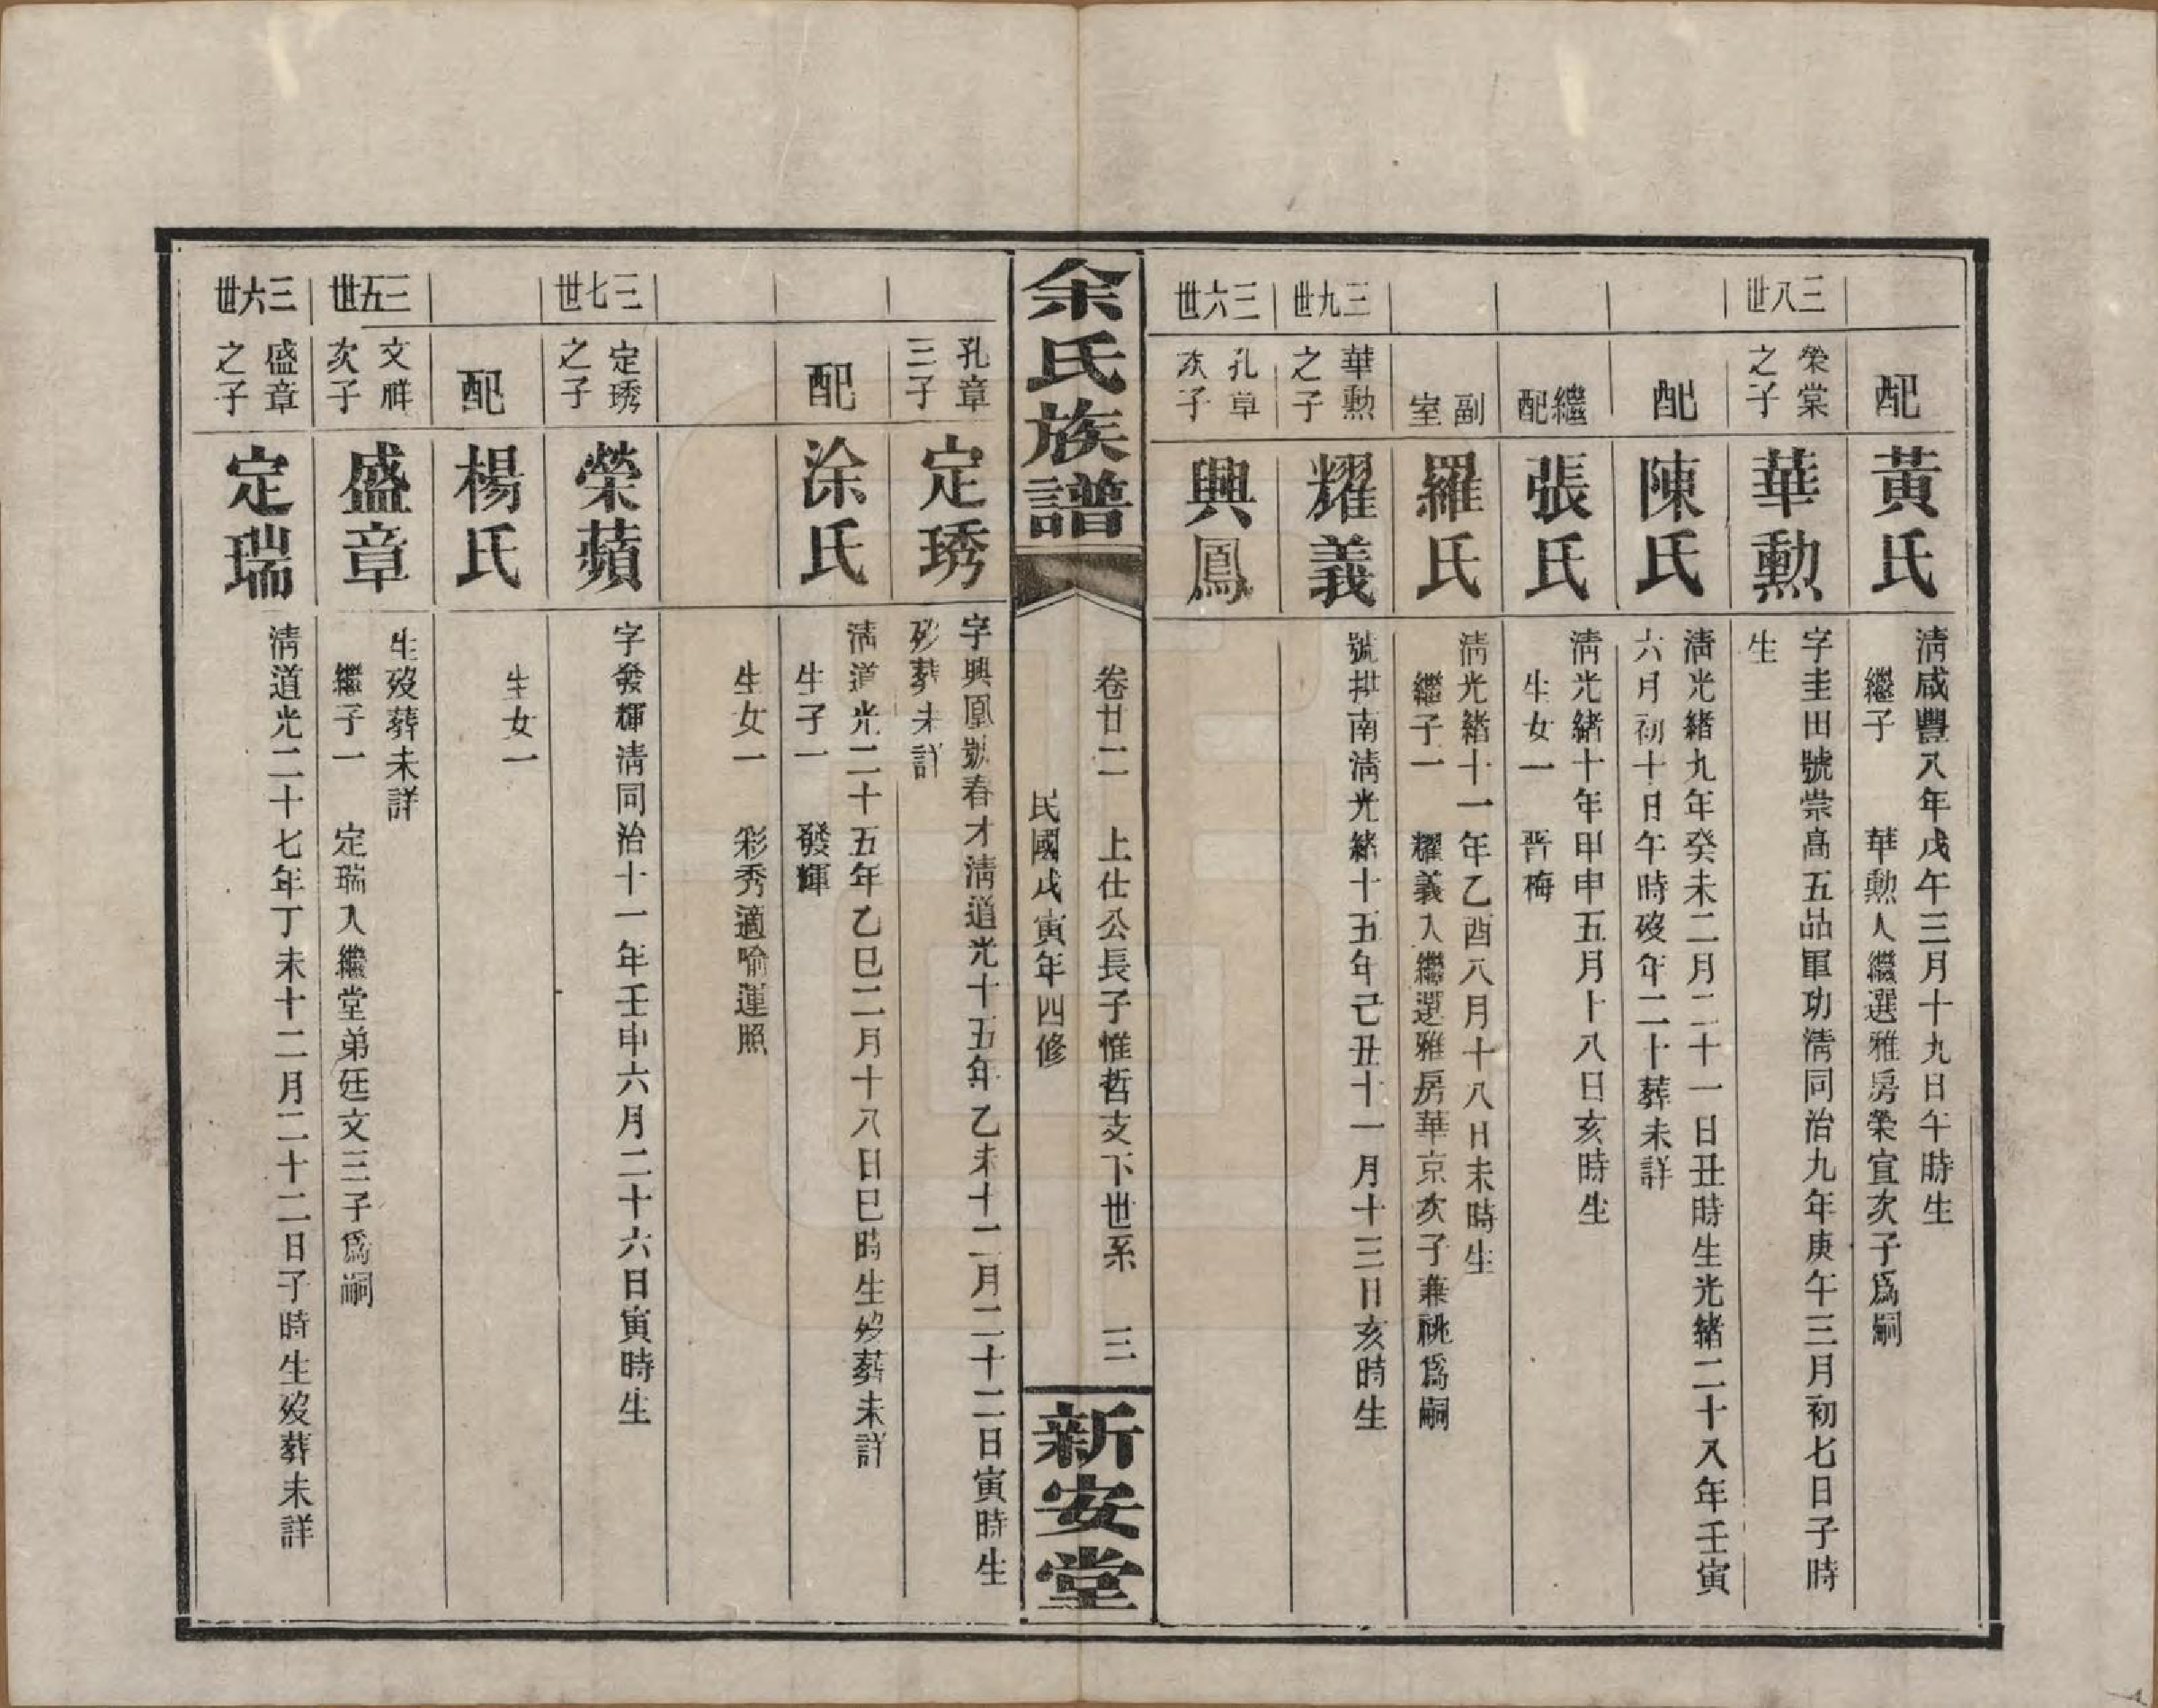 配
黃氏
清咸豐八年戊午三月十九日午時生
繼子 華勲入繼選雅房榮宜次子爲嗣
三八世
榮棠
之子
華勲
字圭田號崇高五品軍功清同治九年庚午三月初七日子時
生
配
陳氏
清光緒九年癸未二月二十一日丑時生光緒二十八年壬寅
六月初十日午時歿年二十葬未詳
繼配
張氏
清光緒十年甲申五月十八日亥時生
生女一 晋梅
副室
羅氏
清光緒十一年乙酉八月十八日未時生
繼子一 耀義入繼選雅房華京次子兼祧爲嗣
三九世
華勲
之子
耀義
號拱南清光緒十五年己丑十一月十三日亥時生
三六世
孔章
次子
興鳳
余氏族譜
卷廿二 上仕公長子惟哲支下世系 三
民國戊寅年四修
新安堂
孔章
三子
定琇
字興凰號春才清道光十五年乙未十二月二十二日寅時生
歿葬未詳
配
涂氏
清道光二十五年乙巳二月十八日巳時生歿葬未詳
生子一 發輝
生女一 彩秀適喻運照
三七世
定琇
之子
榮蘋
字發輝清同治十一年壬申六月二十六日寅時生
配
楊氏
生女一
三五世
文祥
次子
盛章
生歿葬未詳
繼子一 定瑞入繼堂弟廷文三子爲嗣
三六世
盛章
之子
定瑞
清道光二十七年丁未十二月二十二日子時生歿葬未詳